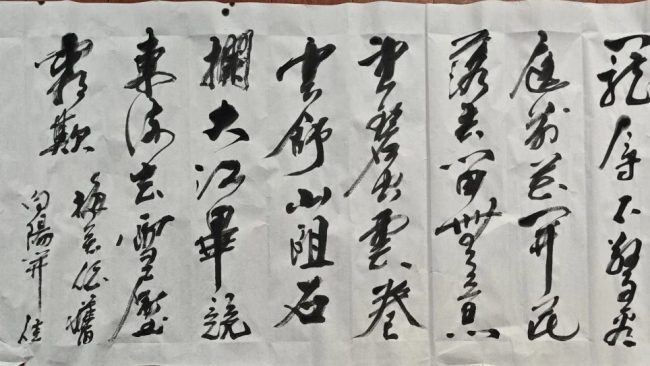 寵辱不驚看
庭前花開花
落去留無意
望碧空雲卷
雲舒山阻石
攔大江畢競
東流去雪壓
霜欺
梅花依舊
向陽開